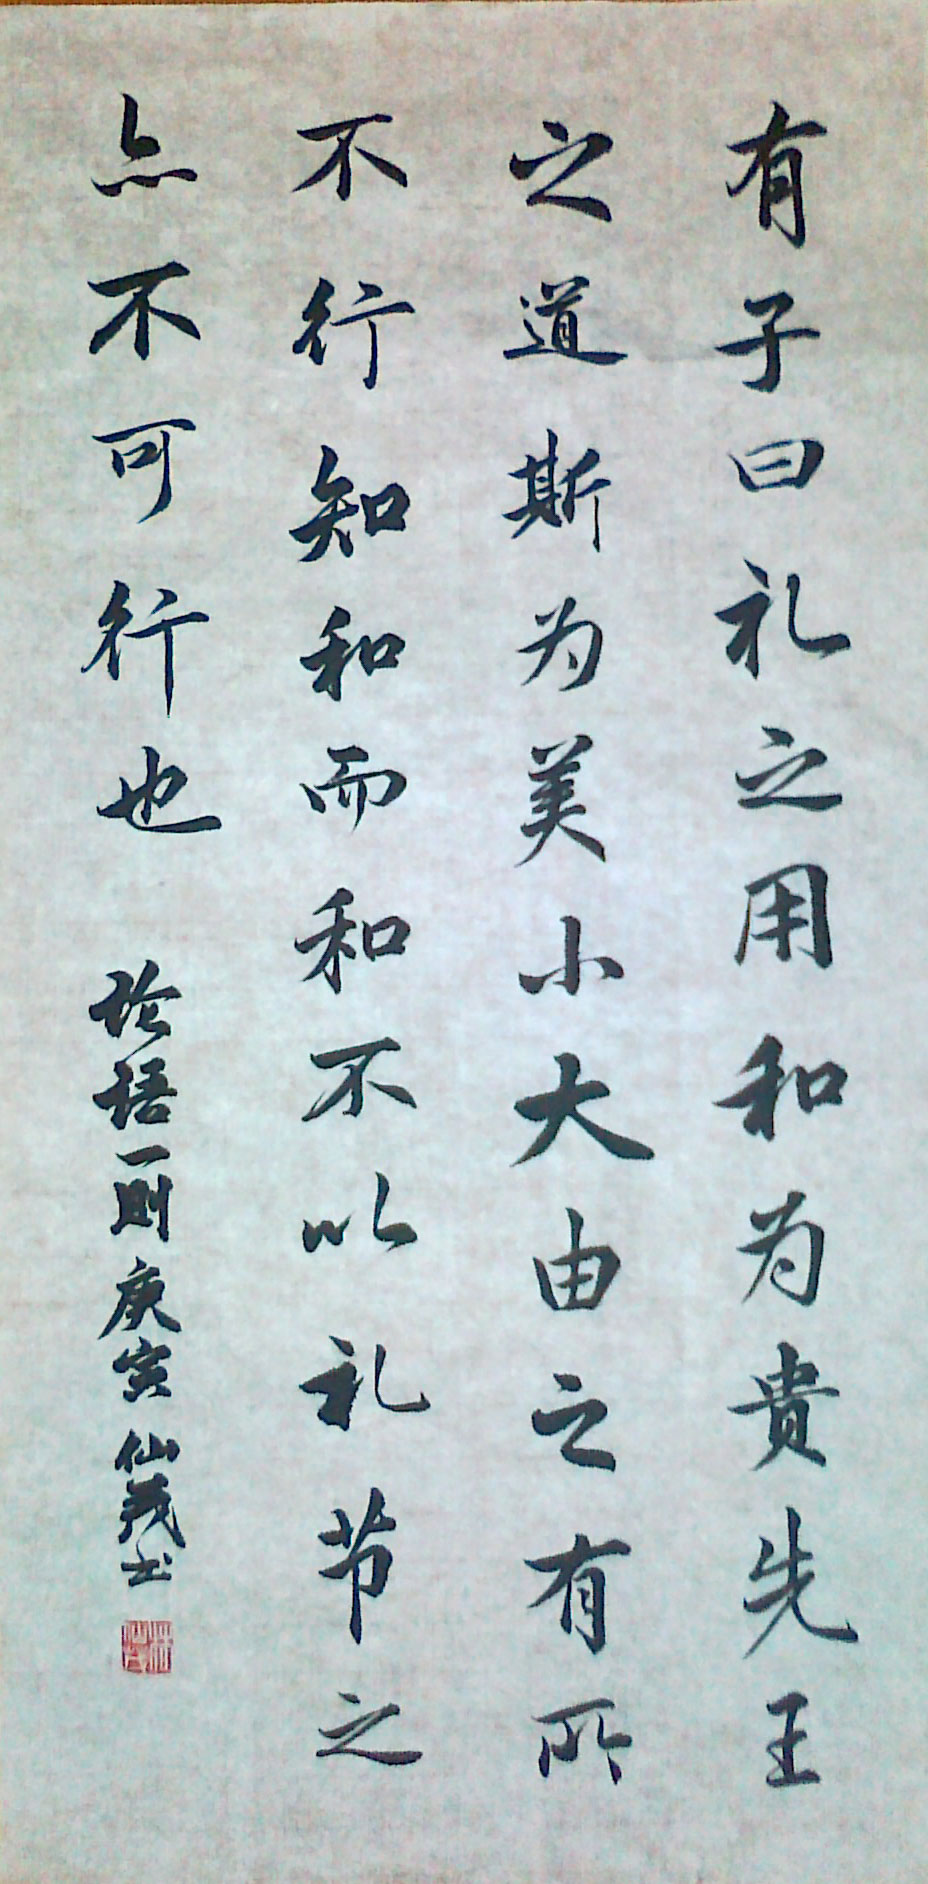 有子曰礼之用和为貴先王
之道斯为美小大由之有所
不行知和而和不以礼节之
亦不可行也 论语一则庚寅 仙茂书